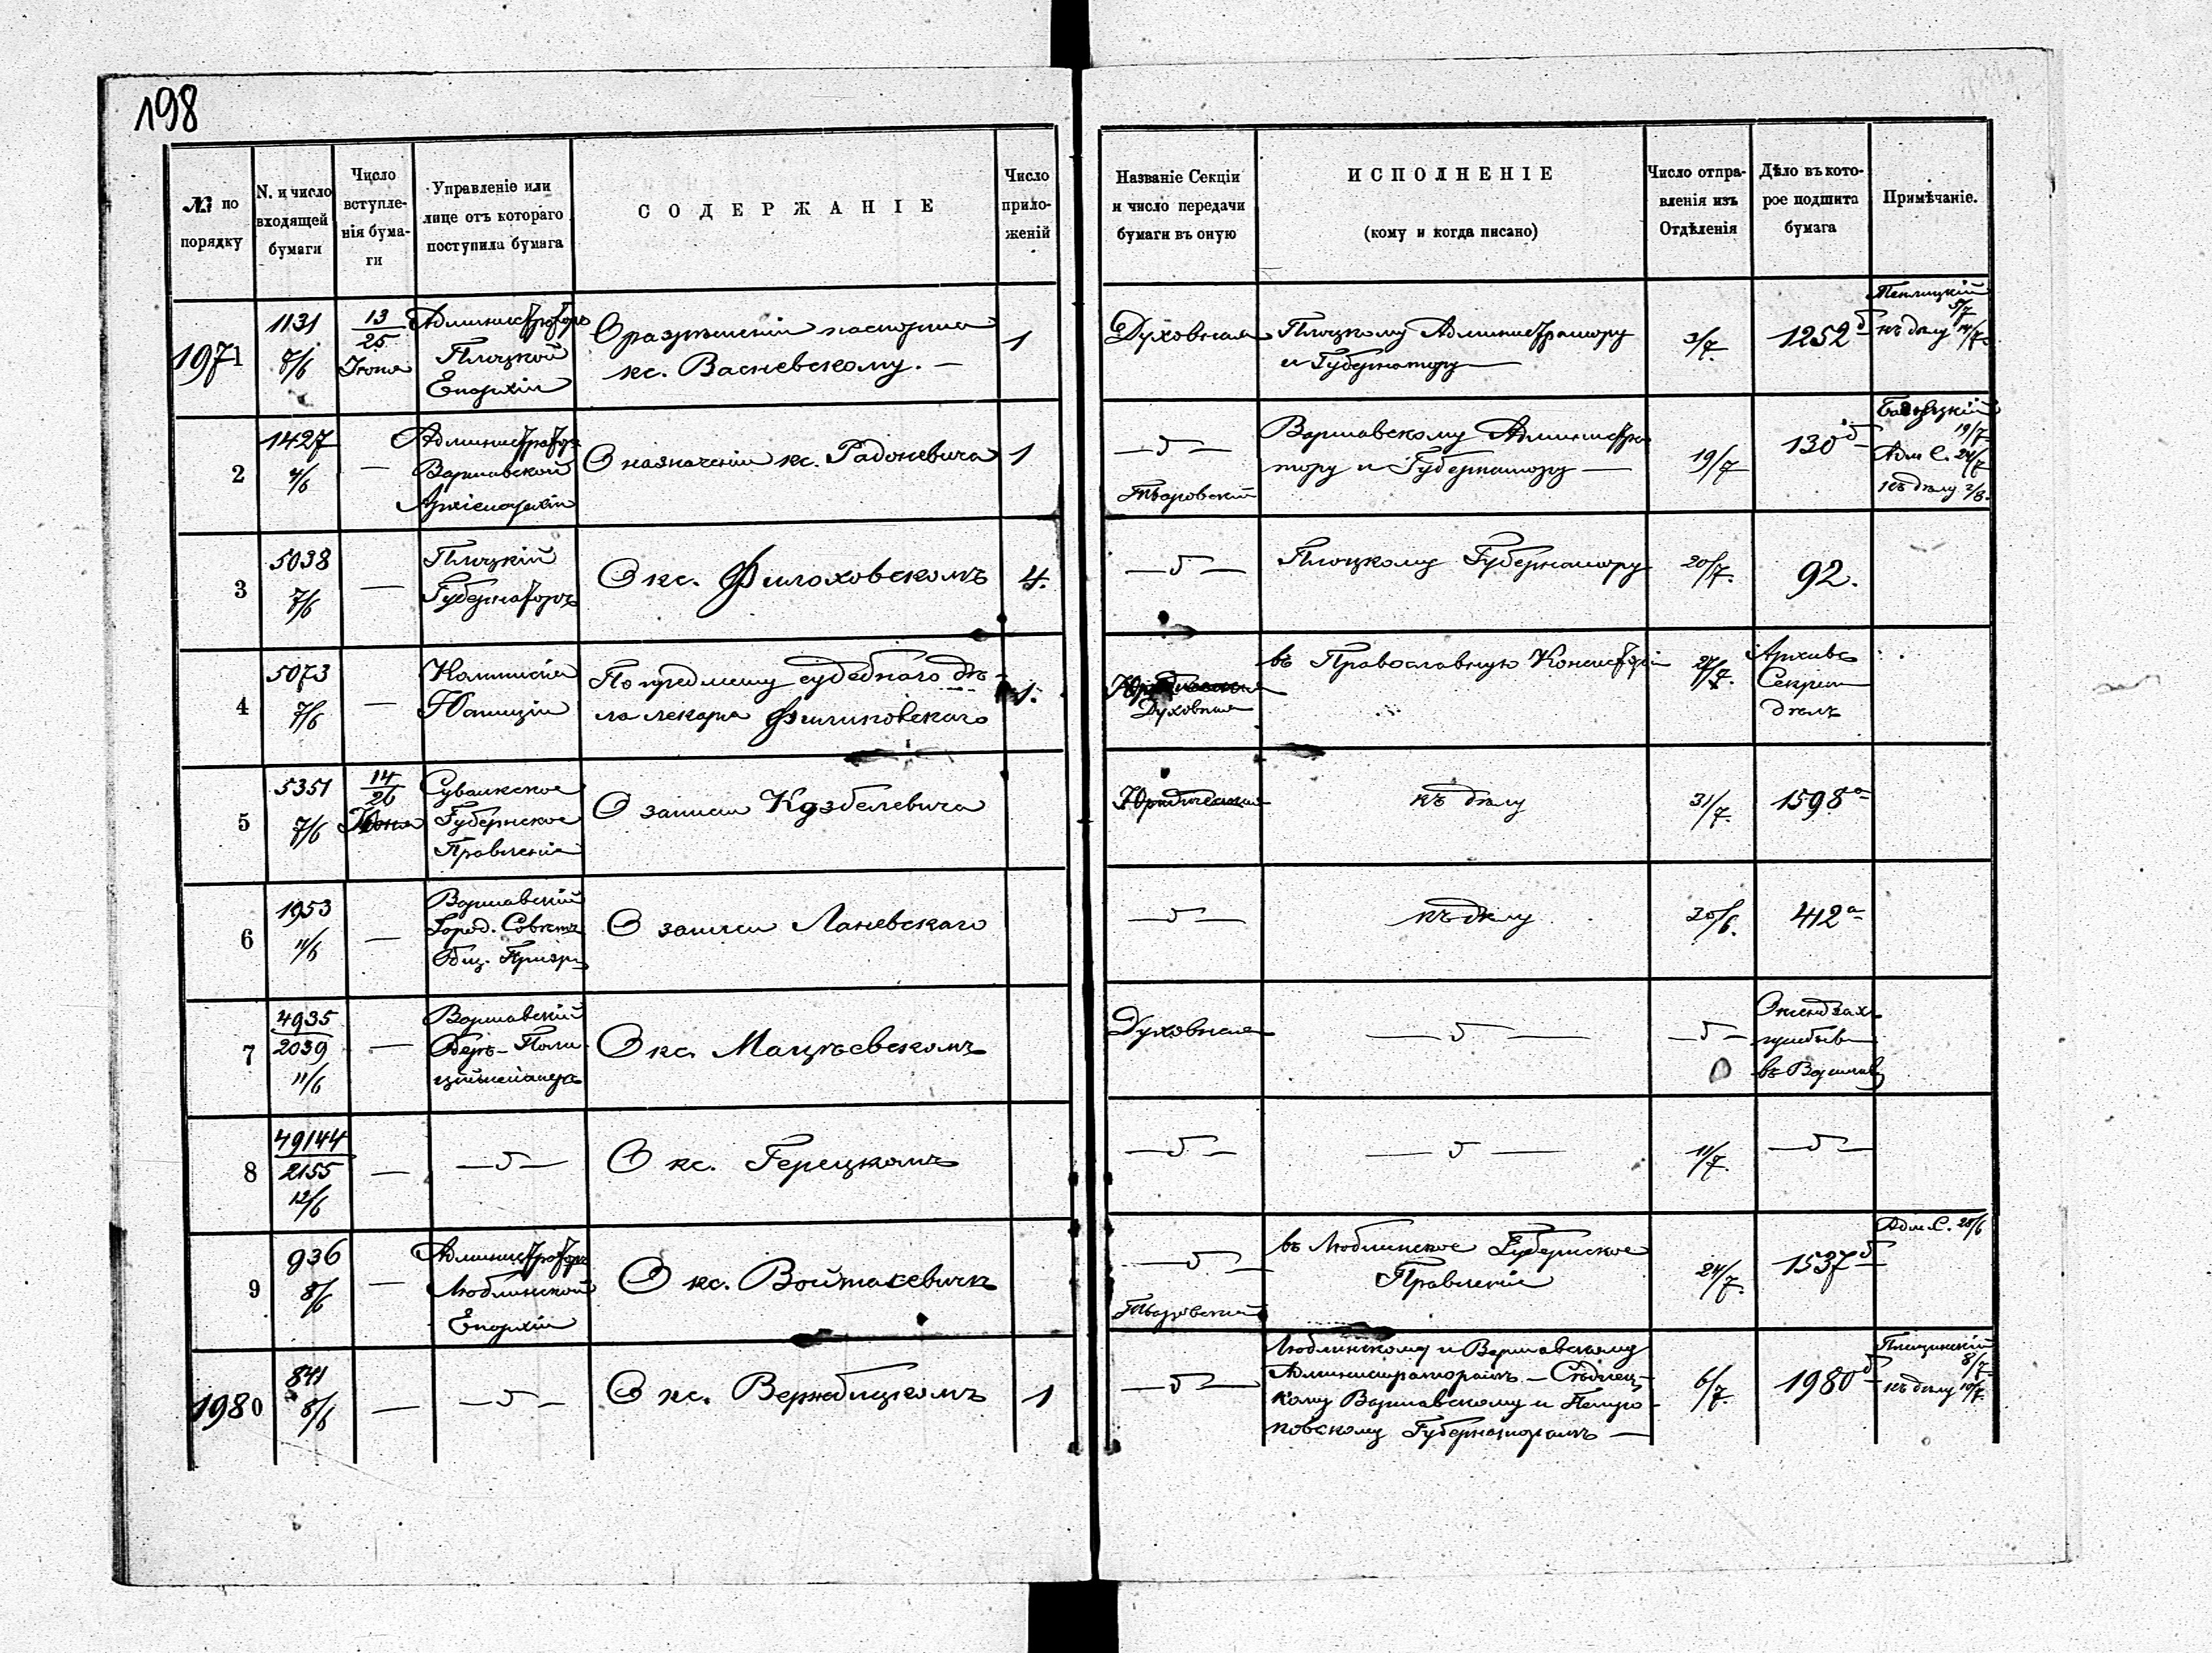 198
№ по порядку
N. и число входящей бумаги
Число вступленія бумаги
Управленіе или лице отъ котораго поступила бумага
СОДЕРЖАНІЕ
Число приложеній
Названіе Секціи и число передачи бумаги въ оную
ИСПОЛНЕНІЕ
(кому и когда писано)
Число отправленія изъ Отдѣленія
Дѣло въ которое подшита бумага
Примѣчаніе.
1971
1131
8/6
13/25
Іюня
Администраторъ
Плоцкой
Епархіи
О разрѣшеніи паспорта
кс. Васневскому. —
1
Духовная
Плоцкому Администратору
и Губернатору —
3/7.
1252 б
5/7
къ дѣлу 14/7.
2
1427
4/6
—
Администраторъ
Варшавской
Архіепархіи
О назначеніи кс. Радоневича
1
— 5 —
Варшавскому Администра
тору и Губернатору —
19/7
130 б
19/7
Адм С. 24/7
къ дѣлу 2/8.
3
5038
7/6
—
Плоцкій
Губернаторъ
О кс. Филоховскомъ
4.
— 5 —
Плоцкому Губернатору
20/7.
92.
4
5073
7/6
—
Коммисія
Юстиціи
По предмету судебнаго дѣ-
ла лекаря Филиповскаго
1.
Духовная
въ Православную Консисторію
27/7.
Архивъ
Секрет
дѣлъ
5
5351
7/6
14/26
Іюня
Сувалкское
Губернское
Правленіе
О записи Козбелевича
Юридическая
къ дѣлу
31/7.
1598 а
6
1953
11/6
—
Варшавскій
Город. Совѣтъ
Общ. Призр.
О записи Ланевскаго
— 5 —
къ дѣлу
30/6.
412 а
7
4935
2039
11/6
—
Варшавскій
Оберъ-Поли
ціймейстеръ
О кс. Мацѣевскомъ
Духовная
— 5 —
— 5 —
О ксендзахъ
прибыв
въ Варшаву
8
49144
2155
12/6
—
— 5 —
О кс. Герецкомъ
— 5 —
— 5 —
11/7.
— 5 —
9
936
8/6
—
Администраторъ
Люблинской
Епархіи
О кс. Войтасевичѣ
— 5 —
въ Люблинское Губернское
Правленіе
24/7.
1537 б
Адм. С. 28/6
1980
841
8/6
—
— 5 —
О кс. Вержбицкомъ
1
— 5 —
Люблинскому и Варшавскому
Администраторамъ — Сѣдлец-
кому Варшавскому и Петро-
ковскому Губернаторамъ —
6/7.
1980 б
8/7
къ дѣлу 10/7.